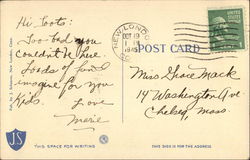 Hi Toots:
Too bad you
couldn't be here.
Loads of fun
imagine for you
kids.
Love
Marie
NEW LONDON
OCT 19
1 PM
POST CARD
Miss Shove Mack
14 Washington Ave
Chelsea, Mass
JS
THIS SPACE FOR WRITING
THIS SIDE IS FOR THE ADDRESS